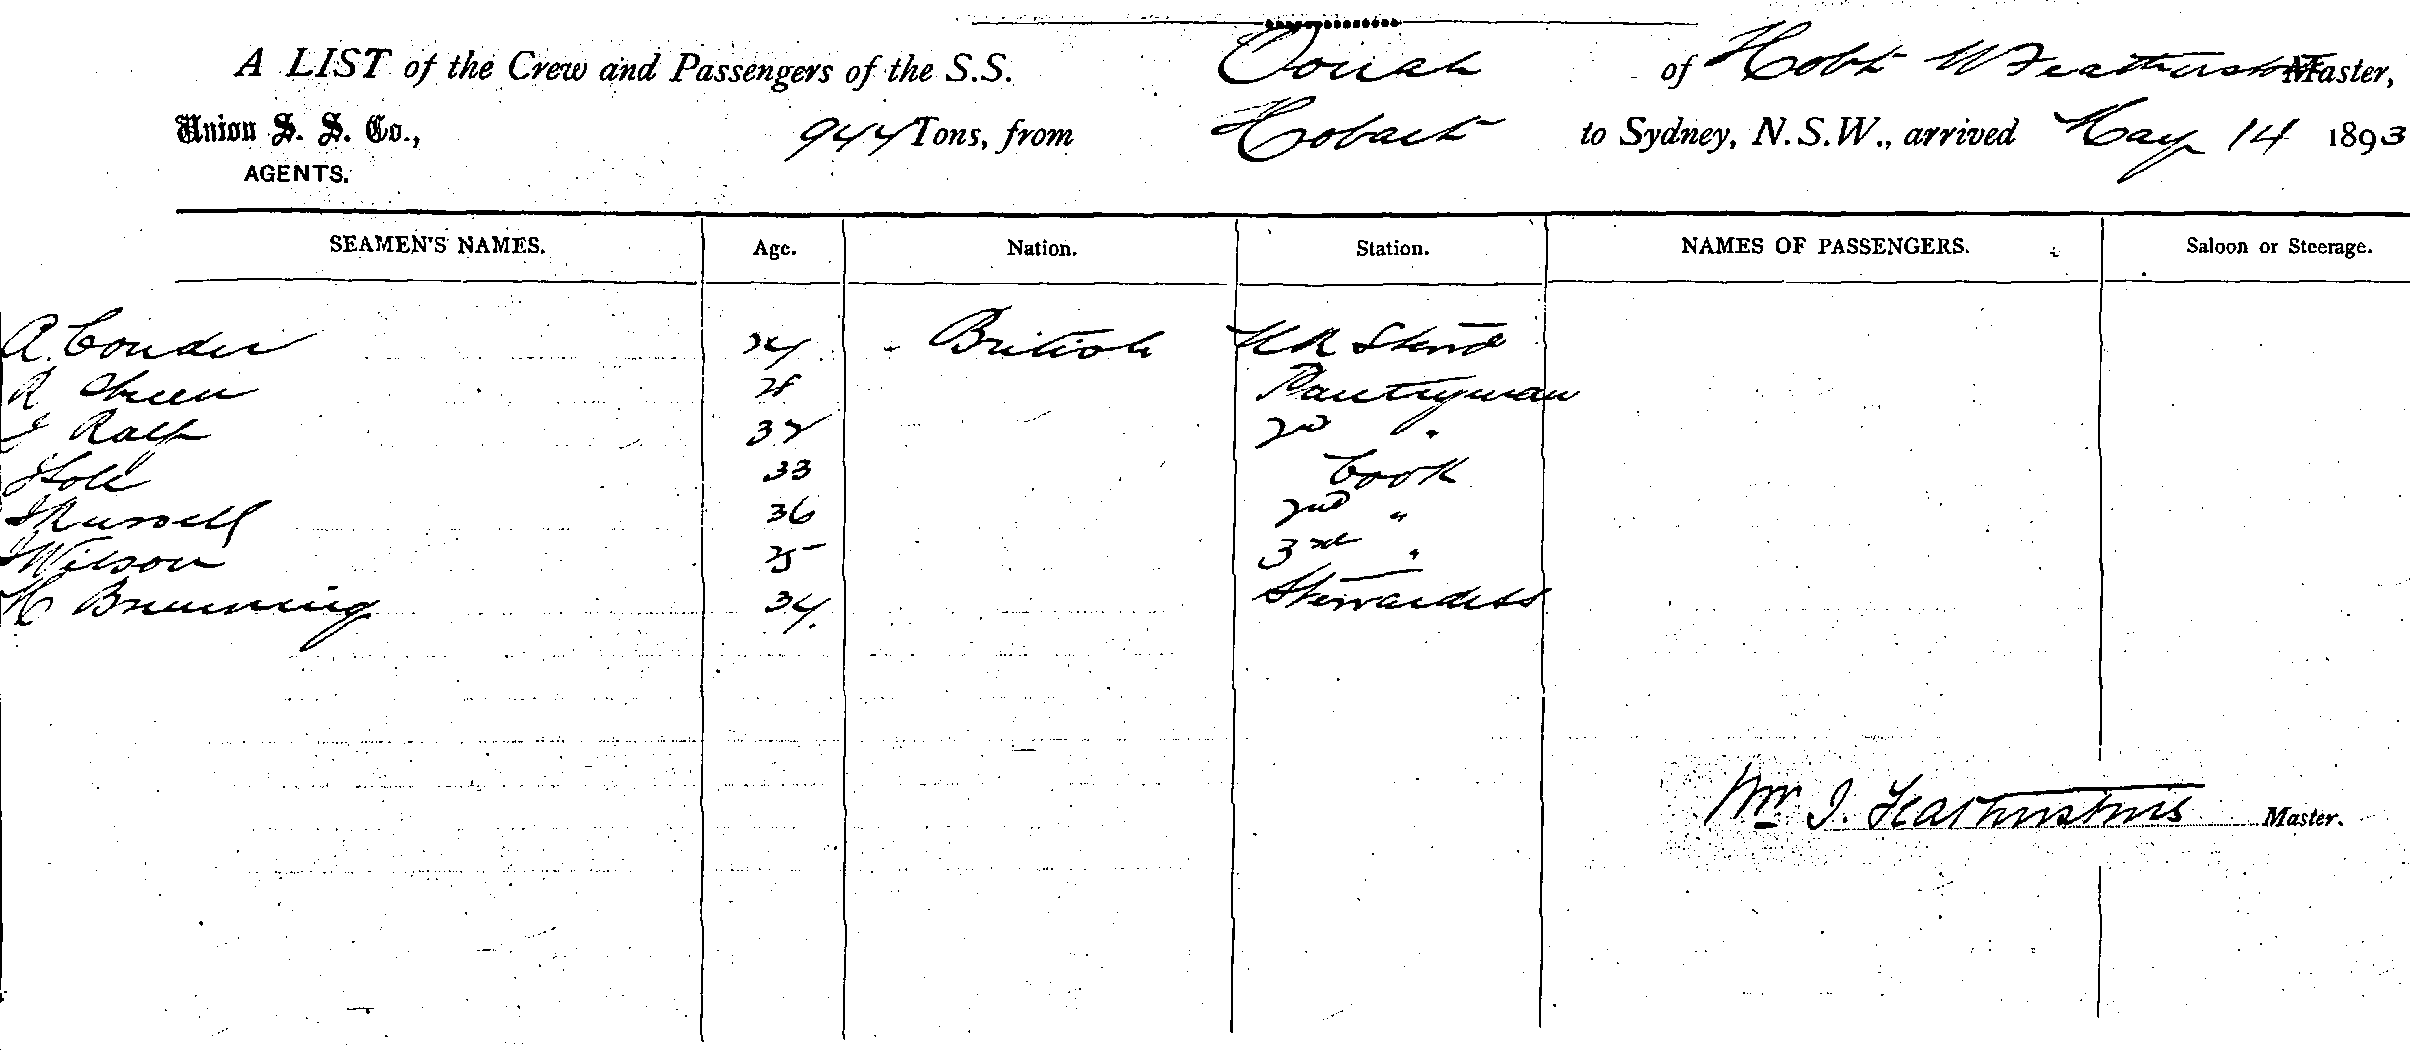 A LIST of the Crew and Passengers of the S.S. Oonah of Hobt W Featherstone Master,
Union S. S. Co., 944 Tons, from Hobart to Sydney, N.S.W., arrived May 14 1893
AGENTS.
SEAMEN'S NAMES. Age. Nation. Station. NAMES OF PASSENGERS. Saloon or Steerage.
A. Conder 24 British
R 28 Pantryman
J Ralf 32 2nd "
Holl 33 Cook
J Russell 36 2nd "
J Wilson 25 3rd "
H Brunning 34. Stewardess
Wm J. Featherstone Master.